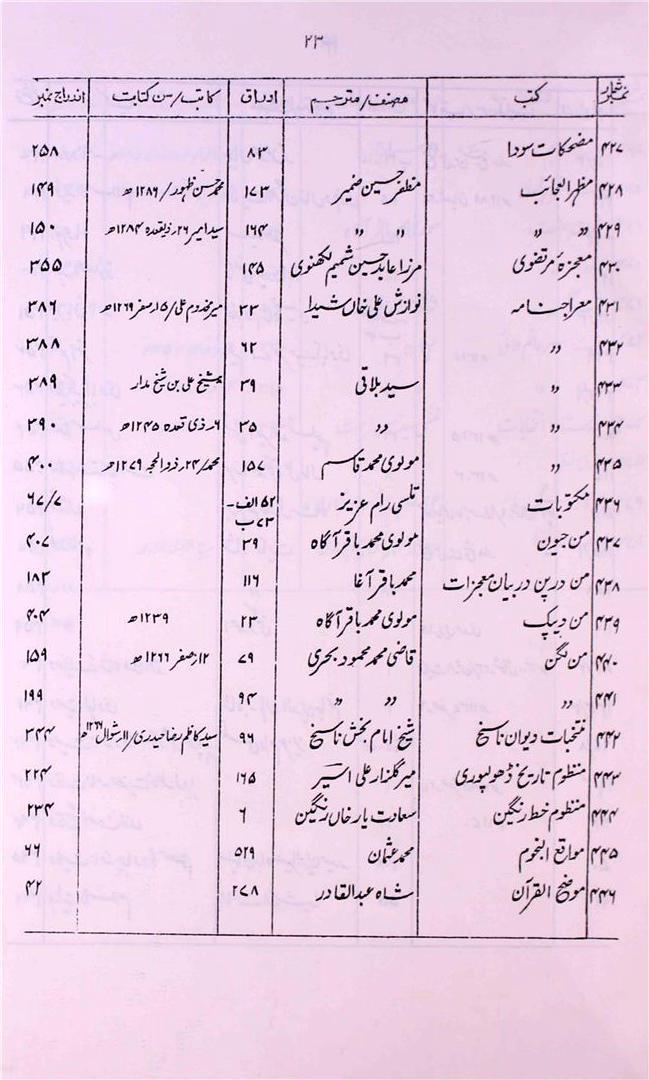 ۲۳
نمبر شمار کتب مصنف/مترجم اوراق کاتب/سن کتابت اندراج نمبر
۴۲۷ مضحکات سودا ۸۳ ۲۵۸
۴۲۸ مظہر العجائب مظفر حسین ضمیر ۱۷۳ محمد حسن ظہور/۱۲۸۶ھ ۱۴۹
۴۲۹ ״ ״ ״ ״ ۱۶۴ سید امیر ۲۶ر ذیقعدہ ۱۲۸۴ھ ۱۵۰
۴۳۰ معجزۂ مرتضوی مرزا عابد حسین شمیم لکھنوی ۱۴۵ ۳۵۵
۴۳۱ معراجنامہ نوازش علی خاں شیدا ۲۳ میر مخدوم علی/۱۵ر صفر ۱۲۶۹ھ ۳۸۶
۴۳۲ ״ ۶۲ ۳۸۸
۴۳۳ ״ سید بلاقی ۳۹ شیخ علی بن شیخ مدار ۳۸۹
۴۳۴ ״ ״ ۳۵ ۶ر ذی قعدہ ۱۲۴۵ھ ۳۹۰
۴۳۵ ״ مولوی محمد قاسم ۱۵۷ محمد/۲۴ر ذوالحجہ ۱۲۷۹ھ ۴۰۰
۴۳۶ مکتوبات تلسی رام عزیز ۵۲ الف- ۶۷/۷
۷۳ ب
۴۳۷ من جیون مولوی محمد باقر آگاہ ۳۹ ۴۰۷
۴۳۸ من درپن در بیان معجزات محمد باقر آغا ۱۱۶ ۱۸۳
۴۳۹ من دیپک مولوی محمد باقر آگاہ ۲۲ ۱۲۳۹ھ ۴۰۴
۴۴۰ من لگن قاضی محمد محمود بحری ۷۹ ۱۲ر صفر ۱۲۶۶ھ ۱۵۹
۴۴۱ ״ ״ ״ ۹۴ ۱۹۹
۴۴۲ منتخبات دیوان ناسخ شیخ امام بخش ناسخ ۹۶ سید کاظم رضا حیدری/۱۱ر شوال ھ ۳۴۴
۴۴۳ منظوم تاریخ ڈھولپوری میر گلزار علی اسیر ۱۶۵ ۲۲۴
۴۴۴ منظوم خط رنگین سعادت یار خاں رنگین ۶ ۲۳۴
۴۴۵ مواقع النجوم محمد عثمان ۵۲۹ ۶۶
۴۴۶ موضح القرآن شاہ عبدالقادر ۲۷۸ ۴۲